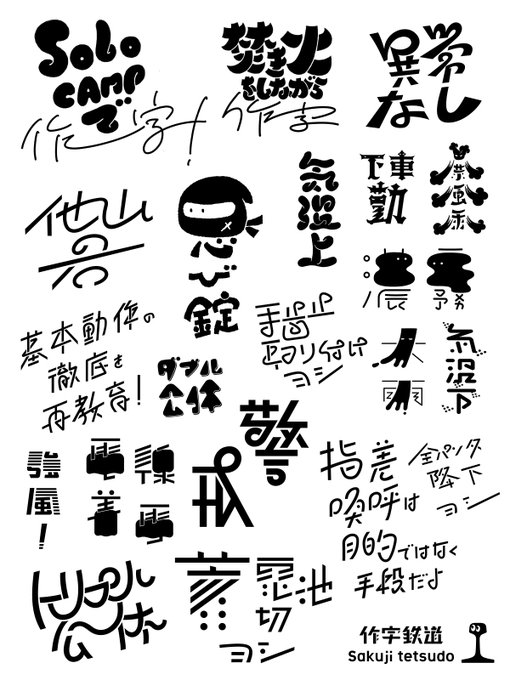 Solo
CAMP
で
作字!
焚き火
をしながら
作字
異常
なし
気温上
下車
勤
他山
の
石
忍び
錠
濃霧
大雨
気温下
基本動作の
徹底を
再教育!
手歯止
取り付け
ヨシ
ダブル
公休
警
戒
強
風
!
電線
着雪
指差
喚呼は
目的ではなく
手段だよ
全パンタ
降下
ヨシ
トリプル
公休
池
切
ヨシ
作字鉄道
Sakuji tetsudo